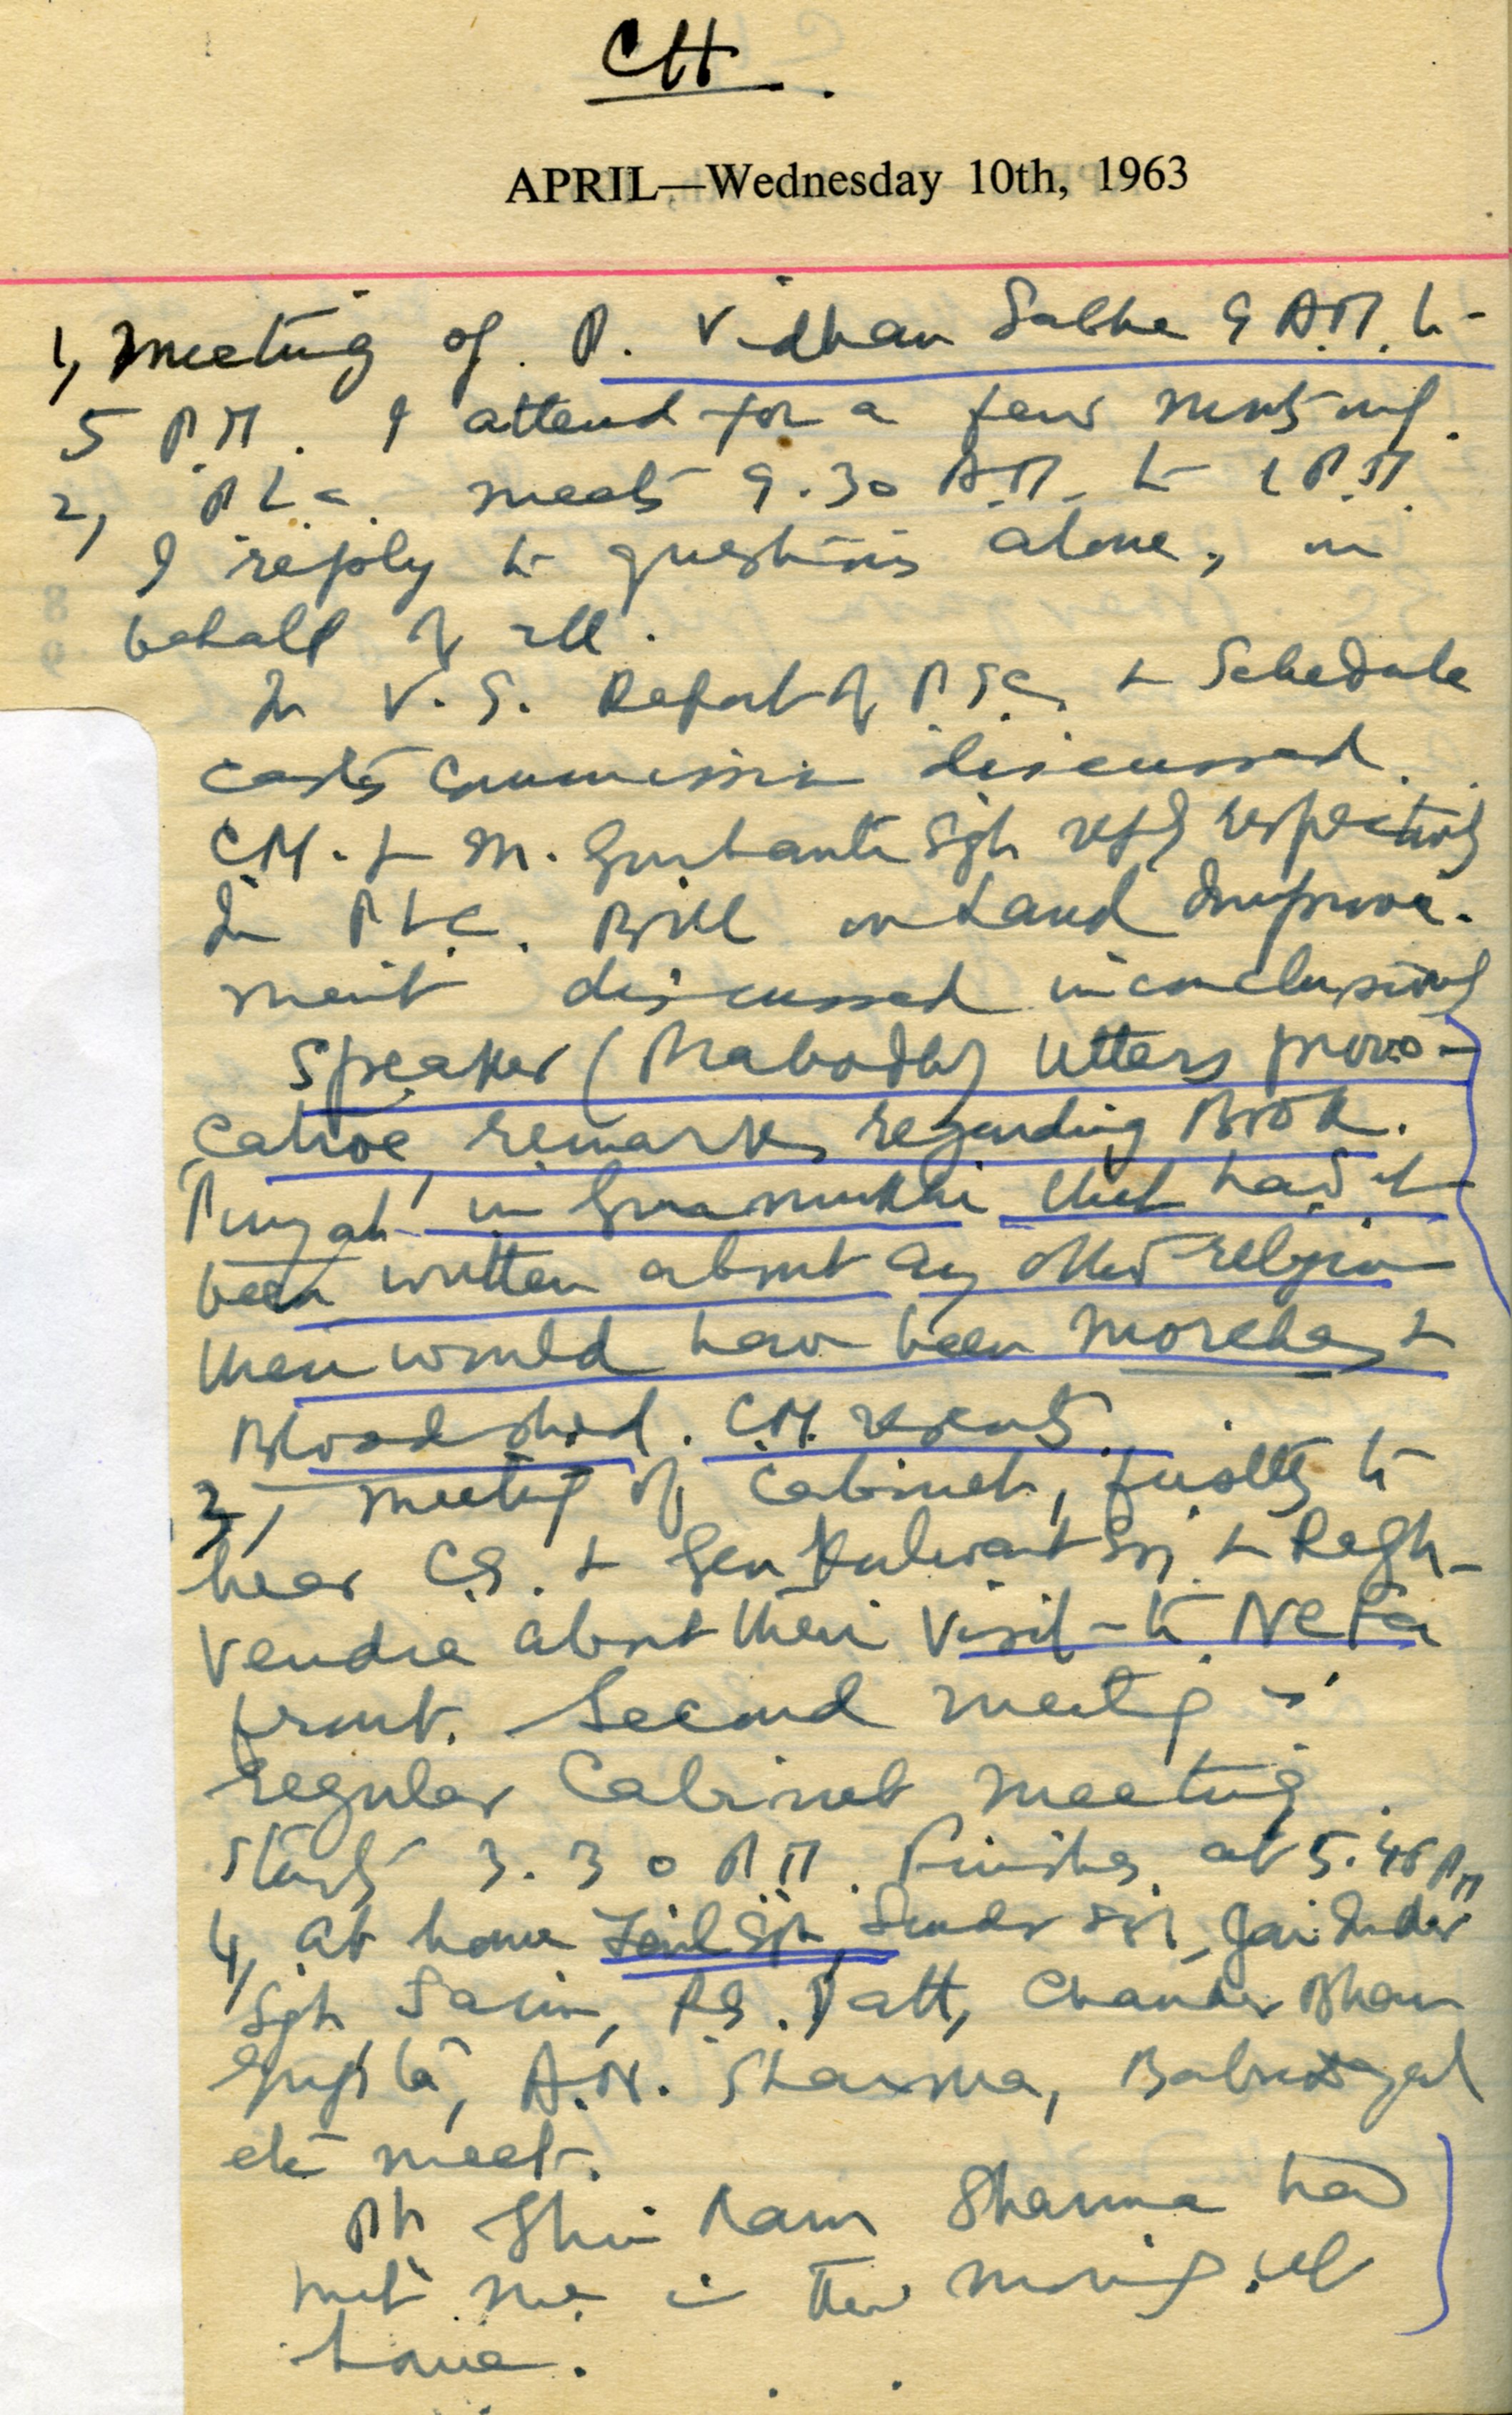 CH.
APRIL—Wednesday 10th, 1963
1, Meeting of P. Vidhan Sabha 9 A.M. to
5 P.M. I attend for a few minutes only.
2, P.L.C. meets 9.30 A.M. to 1 P.M.
I reply to questions alone, on
behalf of all.
In V.S. Report of P.S.C. & Schedule
castes Commission discussed.
C.M. & M. Gurbanta Sgh reply respectively
In P.L.C. Bill on Land Improve-
ment discussed inconclusively
Speaker (Prabodh) utters provo-
cative remarks regarding Book.
in Gurmukhi that had it
been written about any other religion
there would have been morchas &
Bloodshed. C.M. resents.
3, Meeting of Cabinet, firstly to
hear C.S. & Gen Kulwant Sgh & Ragh-
vendra about their visit to Nefa
front. Second meeting is
regular Cabinet meeting.
Starts 3.30 P.M. Finishes at 5.45 PM
4, At home Zail Sgh, Sunder Sgh, Jai Inder
Sgh R.S. Datt, Chander Bhan
Gupta, A.N. Sharma, Babu Dayal
etc meet.
Pt Shri Ram Sharma had
met me in the morning at
house.